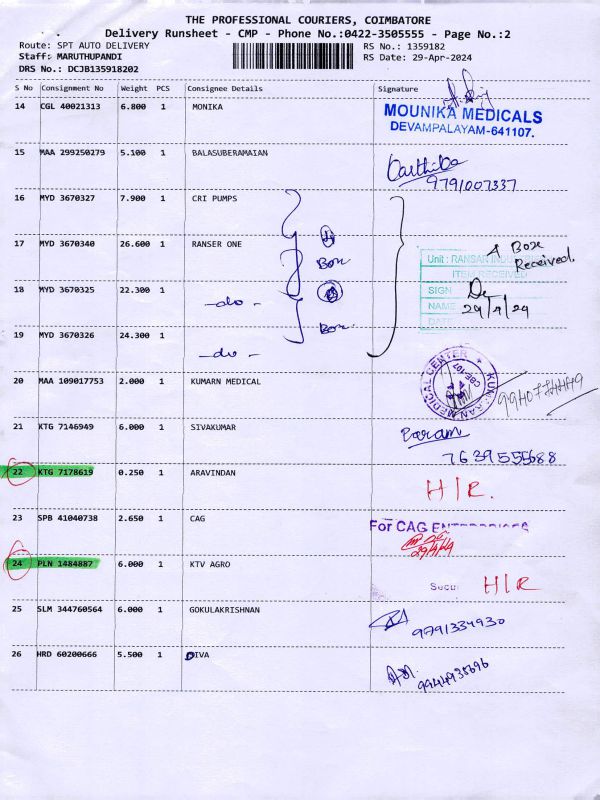 THE PROFESSIONAL COURIERS, COIMBATORE
Delivery Runsheet - CMP - Phone No.:0422-3505555 - Page No.:2
Route: SPT AUTO DELIVERY
RS No.: 1359182
Staff: MARUTHUPANDI
RS Date: 29-Apr-2024
DRS No.: DCJB135918202
S No Consignment No Weight PCS Consignee Details Signature
14 CGL 40021313 6.800 1 MONIKA
MOUNIKA MEDICALS
DEVAMPALAYAM-641107.
15 MAA 299250279 5.100 1 BALASUBERAMAIAN
Karthika
9791007337
16 MYD 3670327 7.900 1 CRI PUMPS
17 MYD 3670340 26.600 1 RANSER ONE
Box
4 Box
Received.
Unit : RANSAR INDU
ITEM RECEIVED
SIGN
NAME
DATE
29/4/24
18 MYD 3670325 22.300 1 -do-
Box
19 MYD 3670326 24.300 1
-do-
20 MAA 109017753 2.000 1 KUMARN MEDICAL
KUMARAN MEDICAL CENTER
CBE-107
21 KTG 7146949 6.000 1 SIVAKUMAR
7639555688
22 KTG 7178619 0.250 1 ARAVINDAN
H|R.
23 SPB 41040738 2.650 1 CAG
For CAG ENTERPRISES
29/4/24
24 PLN 1484887 6.000 1 KTV AGRO
H|R
25 SLM 344760564 6.000 1 GOKULAKRISHNAN
9791334930
26 HRD 60200666 5.500 1 DIVA
9944935696